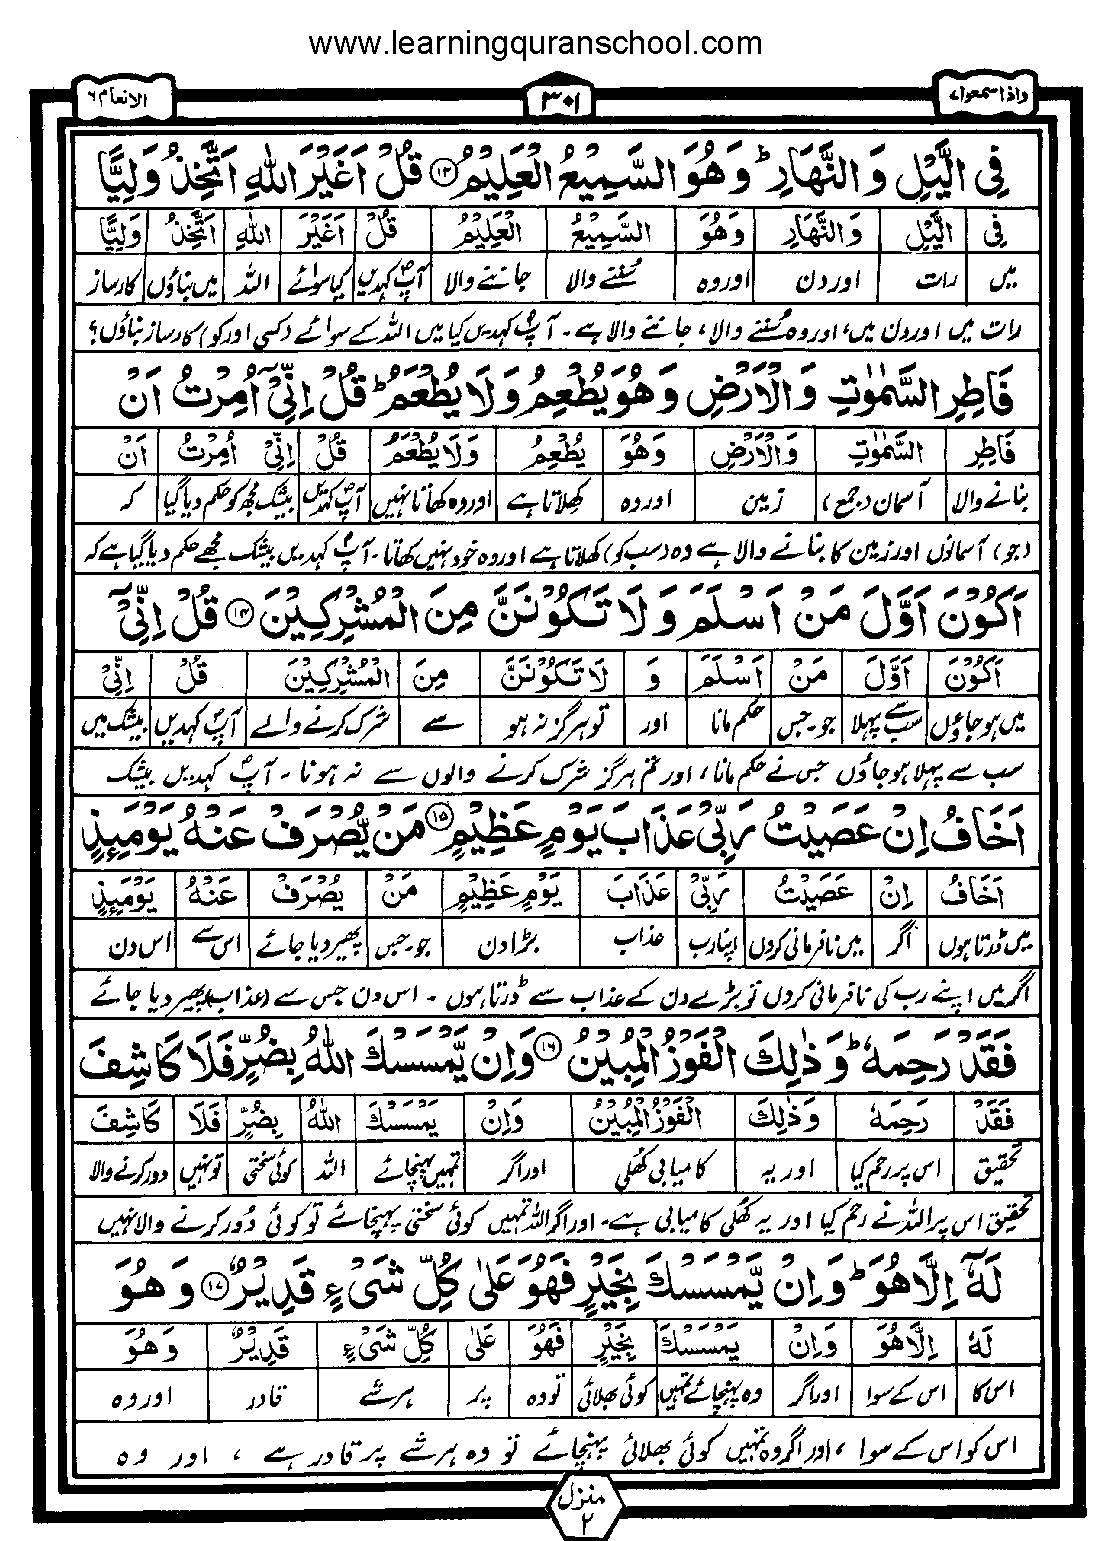 www.learningquranschool.com
واذا سمعوا ۷
۳۰۱
الانعام ۶
فِی الَّیۡلِ وَ النَّهَارِ ؕ وَ هُوَ السَّمِیۡعُ الۡعَلِیۡمُ ﴿۱۳﴾ قُلۡ اَغَیۡرَ اللّٰهِ اَتَّخِذُ وَلِیًّا
فِی الَّیۡلِ وَ النَّهَارِ وَ هُوَ السَّمِیۡعُ الۡعَلِیۡمُ قُلۡ اَغَیۡرَ اللّٰهِ اَتَّخِذُ وَلِیًّا
میں رات اور دن اور وہ سُننے والا جاننے والا آپؐ کہدیں کیا سوائے اللہ میں بناؤں کارساز
رات میں اور دن میں، اور وہ سُننے والا، جاننے والا ہے۔ آپؐ کہدیں کیا میں اللہ کے سوائے (کسی اور کو) کارساز بناؤں؟
فَاطِرِ السَّمٰوٰتِ وَ الۡاَرۡضِ وَ هُوَ یُطۡعِمُ وَ لَا یُطۡعَمُ ؕ قُلۡ اِنِّیۡۤ اُمِرۡتُ اَنۡ
فَاطِرِ السَّمٰوٰتِ وَ الۡاَرۡضِ وَ هُوَ یُطۡعِمُ وَ لَا یُطۡعَمُ قُلۡ اِنِّیۡۤ اُمِرۡتُ اَنۡ
بنانے والا آسمان (جمع) زمین اور وہ کھلاتا ہے اور وہ کھاتا نہیں آپؐ کہدیں بیشک مجھ کو حکم دیا گیا کہ
(جو) آسمانوں اور زمین کا بنانے والا ہے وہ (سب کو) کھلاتا ہے اور وہ خود نہیں کھاتا۔ آپؐ کہدیں بیشک مجھے حکم دیا گیا ہے کہ
اَکُوۡنَ اَوَّلَ مَنۡ اَسۡلَمَ وَ لَا تَکُوۡنَنَّ مِنَ الۡمُشۡرِکِیۡنَ ﴿۱۴﴾ قُلۡ اِنِّیۡۤ
اَکُوۡنَ اَوَّلَ مَنۡ اَسۡلَمَ وَ لَا تَکُوۡنَنَّ مِنَ الۡمُشۡرِکِیۡنَ قُلۡ اِنِّیۡ
میں ہو جاؤں سب سے پہلا جو۔جس حکم مانا اور تو ہرگز نہ ہو سے شرک کرنے والے آپؐ کہدیں بیشک میں
سب سے پہلا ہو جاؤں جس نے حکم مانا، اور تم ہرگز شرک کرنے والوں سے نہ ہونا۔ آپؐ کہدیں بیشک
اَخَافُ اِنۡ عَصَیۡتُ رَبِّیۡ عَذَابَ یَوۡمٍ عَظِیۡمٍ ﴿۱۵﴾ مَنۡ یُّصۡرَفۡ عَنۡهُ یَوۡمَئِذٍ
اَخَافُ اِنۡ عَصَیۡتُ رَبِّیۡ عَذَابَ یَوۡمٍ عَظِیۡمٍ مَنۡ یُصۡرَفۡ عَنۡهُ یَوۡمَئِذٍ
میں ڈرتا ہوں اگر میں نافرمانی کروں اپنا رب عذاب بڑا دن جو۔جس پھیر دیا جائے اس سے اس دن
اگر میں اپنے رب کی نافرمانی کروں تو بڑے دن کے عذاب سے ڈرتا ہوں۔ اس دن جس سے (عذاب) پھیر دیا جائے
فَقَدۡ رَحِمَهٗ ؕ وَ ذٰلِكَ الۡفَوۡزُ الۡمُبِیۡنُ ﴿۱۶﴾ وَ اِنۡ یَّمۡسَسۡكَ اللّٰهُ بِضُرٍّ فَلَا کَاشِفَ
فَقَدۡ رَحِمَهٗ وَ ذٰلِكَ الۡفَوۡزُ الۡمُبِیۡنُ وَ اِنۡ یَمۡسَسۡكَ اللّٰهُ بِضُرٍّ فَلَا کَاشِفَ
تحقیق اس پر رحم کیا اور یہ کامیابی کھُلی اور اگر تمہیں پہنچائے اللہ کوئی سختی تو نہیں دور کرنے والا
تحقیق اس پر اللہ نے رحم کیا اور یہ کھُلی کامیابی ہے۔ اور اگر اللہ تمہیں کوئی سختی پہنچائے تو کوئی دُور کرنے والا نہیں
لَهٗۤ اِلَّا هُوَ ؕ وَ اِنۡ یَّمۡسَسۡكَ بِخَیۡرٍ فَهُوَ عَلٰی کُلِّ شَیۡءٍ قَدِیۡرٌ ﴿۱۷﴾ وَ هُوَ
لَهٗ اِلَّا هُوَ وَ اِنۡ یَمۡسَسۡكَ بِخَیۡرٍ فَهُوَ عَلٰی کُلِّ شَیۡءٍ قَدِیۡرٌ وَ هُوَ
اس کا اس کے سوا اور اگر وہ پہنچائے تمہیں کوئی بھلائی تو وہ پر ہر شے قادر اور وہ
اس کو اس کے سوا، اور اگر وہ تمہیں کوئی بھلائی پہنچائے تو وہ ہر شے پر قادر ہے، اور وہ
منزل
۲